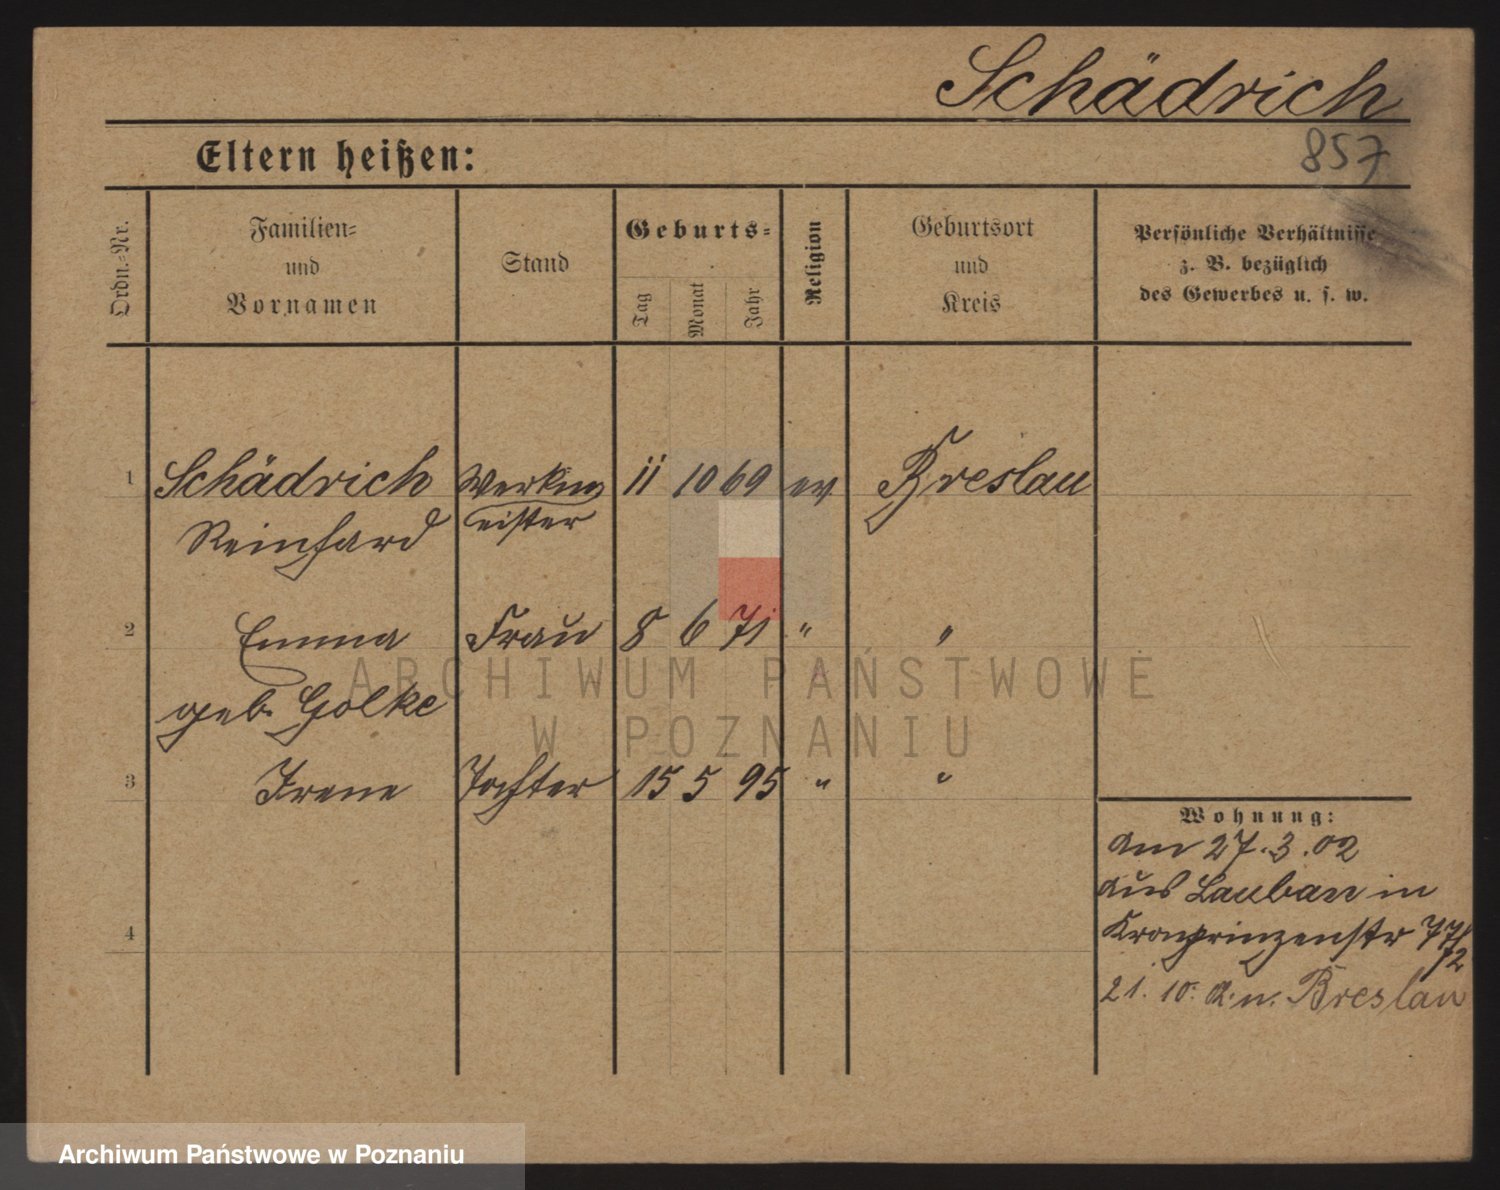 Schädrich
Eltern heißen:
857
Ordn.-Nr.
Familien-
und
Vornamen
Stand
Geburts-
Tag
Monat
Jahr
Religion
Geburtsort
und
Kreis
Persönliche Verhältnisse
z. B. bezüglich
des Gewerbes u. s. w.
1 Schädrich Werkm 11 10 69 ev Breslau
Reinhard eister
2 Emma Frau 8 6 71 " "
geb. Golke
3 Irene Tochter 15 5 95 " "
4
Wohnung:
am 27.3.02
aus Lauban in
Kronprinzenstr 77/
72
21. 10. A. n. Breslau
ARCHIWUM PAŃSTWOWE
W POZNANIU
Archiwum Państwowe w Poznaniu